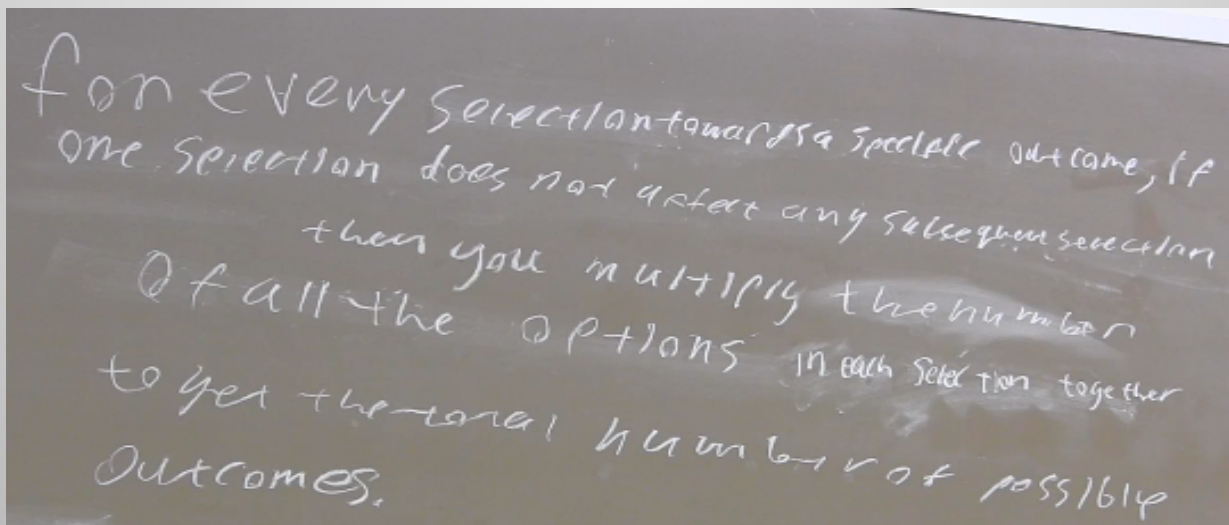 for every selection towards a specific outcome, if
one selection does not affect any subsequent selection
then you multiply the number
of all the options in each selection together
to get the total number of possible
outcomes.